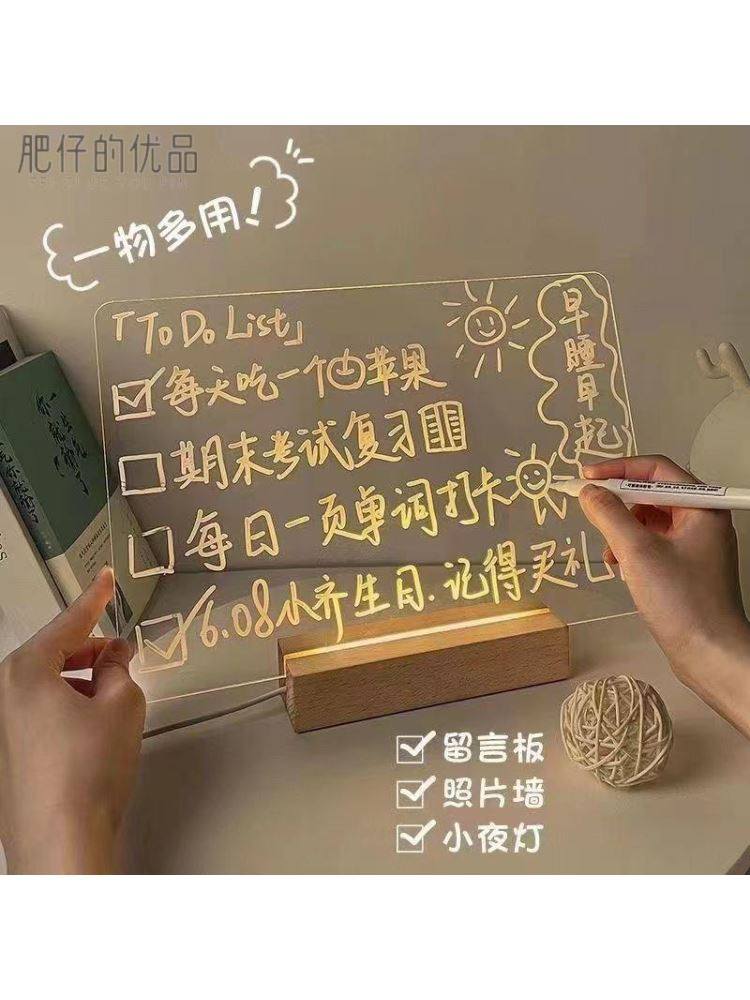 肥仔的优品
一物多用!
「To Do List」
每天吃一个苹果
期末考试复习
每日一页单词打卡
6.08小齐生日.记得买礼
早睡早起
留言板
照片墙
小夜灯